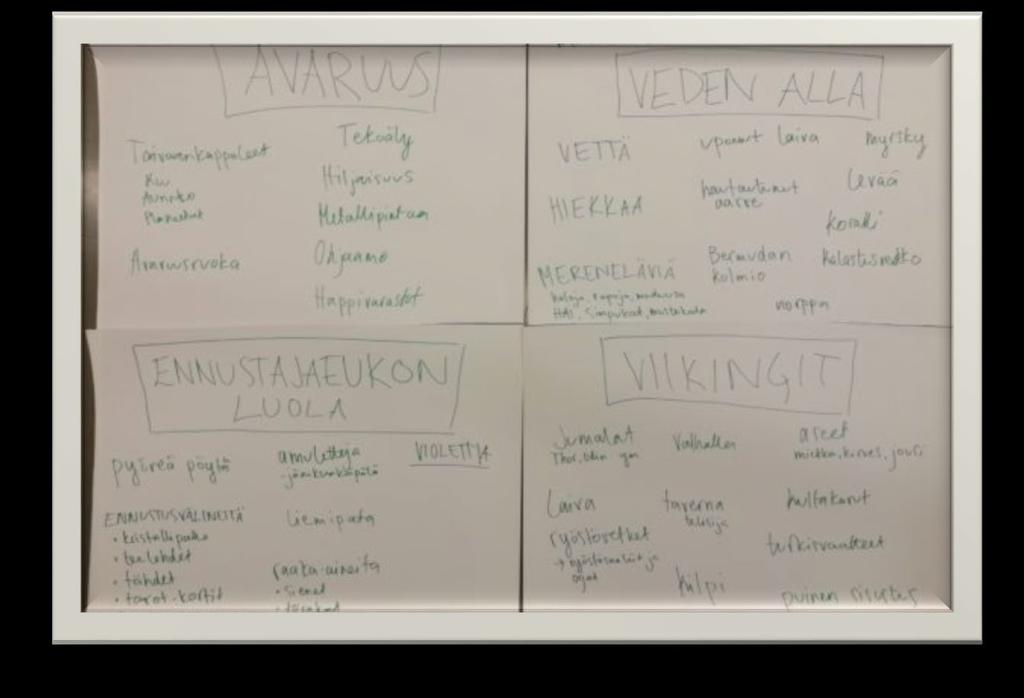 AVARUUS
Taivaankappaleet
Kuu
Aurinko
Planeetat
Avaruusruoka
Tekoäly
Hiljaisuus
Metallipintaa
Ohjaamo
Happivarastot
VEDEN ALLA
VETTÄ
HIEKKAA
MERENELÄVIÄ
kaloja, rapuja, meduusa
HAI, simpukat, mustekala
uponnut laiva
hautautunut
aarre
Bermudan
kolmio
norppa
myrsky
levää
koralli
kalastusmatko
ENNUSTAJAEUKON
LUOLA
pyöreä pöytä
ENNUSTUSVÄLINEITÄ
• kristallipallo
• teelehdet
• tähdet
• tarot-kortit
amuletteja
-jäniksenkäpälä
liemipata
raaka-aineita
• sienet
VIOLETTIA
VIIKINGIT
Jumalat
Thor, Odin ym
Laiva
ryöstöretket
→ ryöstösaaliit ja
orjat
Valhalla
taverna
tulisija
kilpi
aseet
miekka, kirves, jousi
kultakorut
turkisvaatteet
puinen sisustus